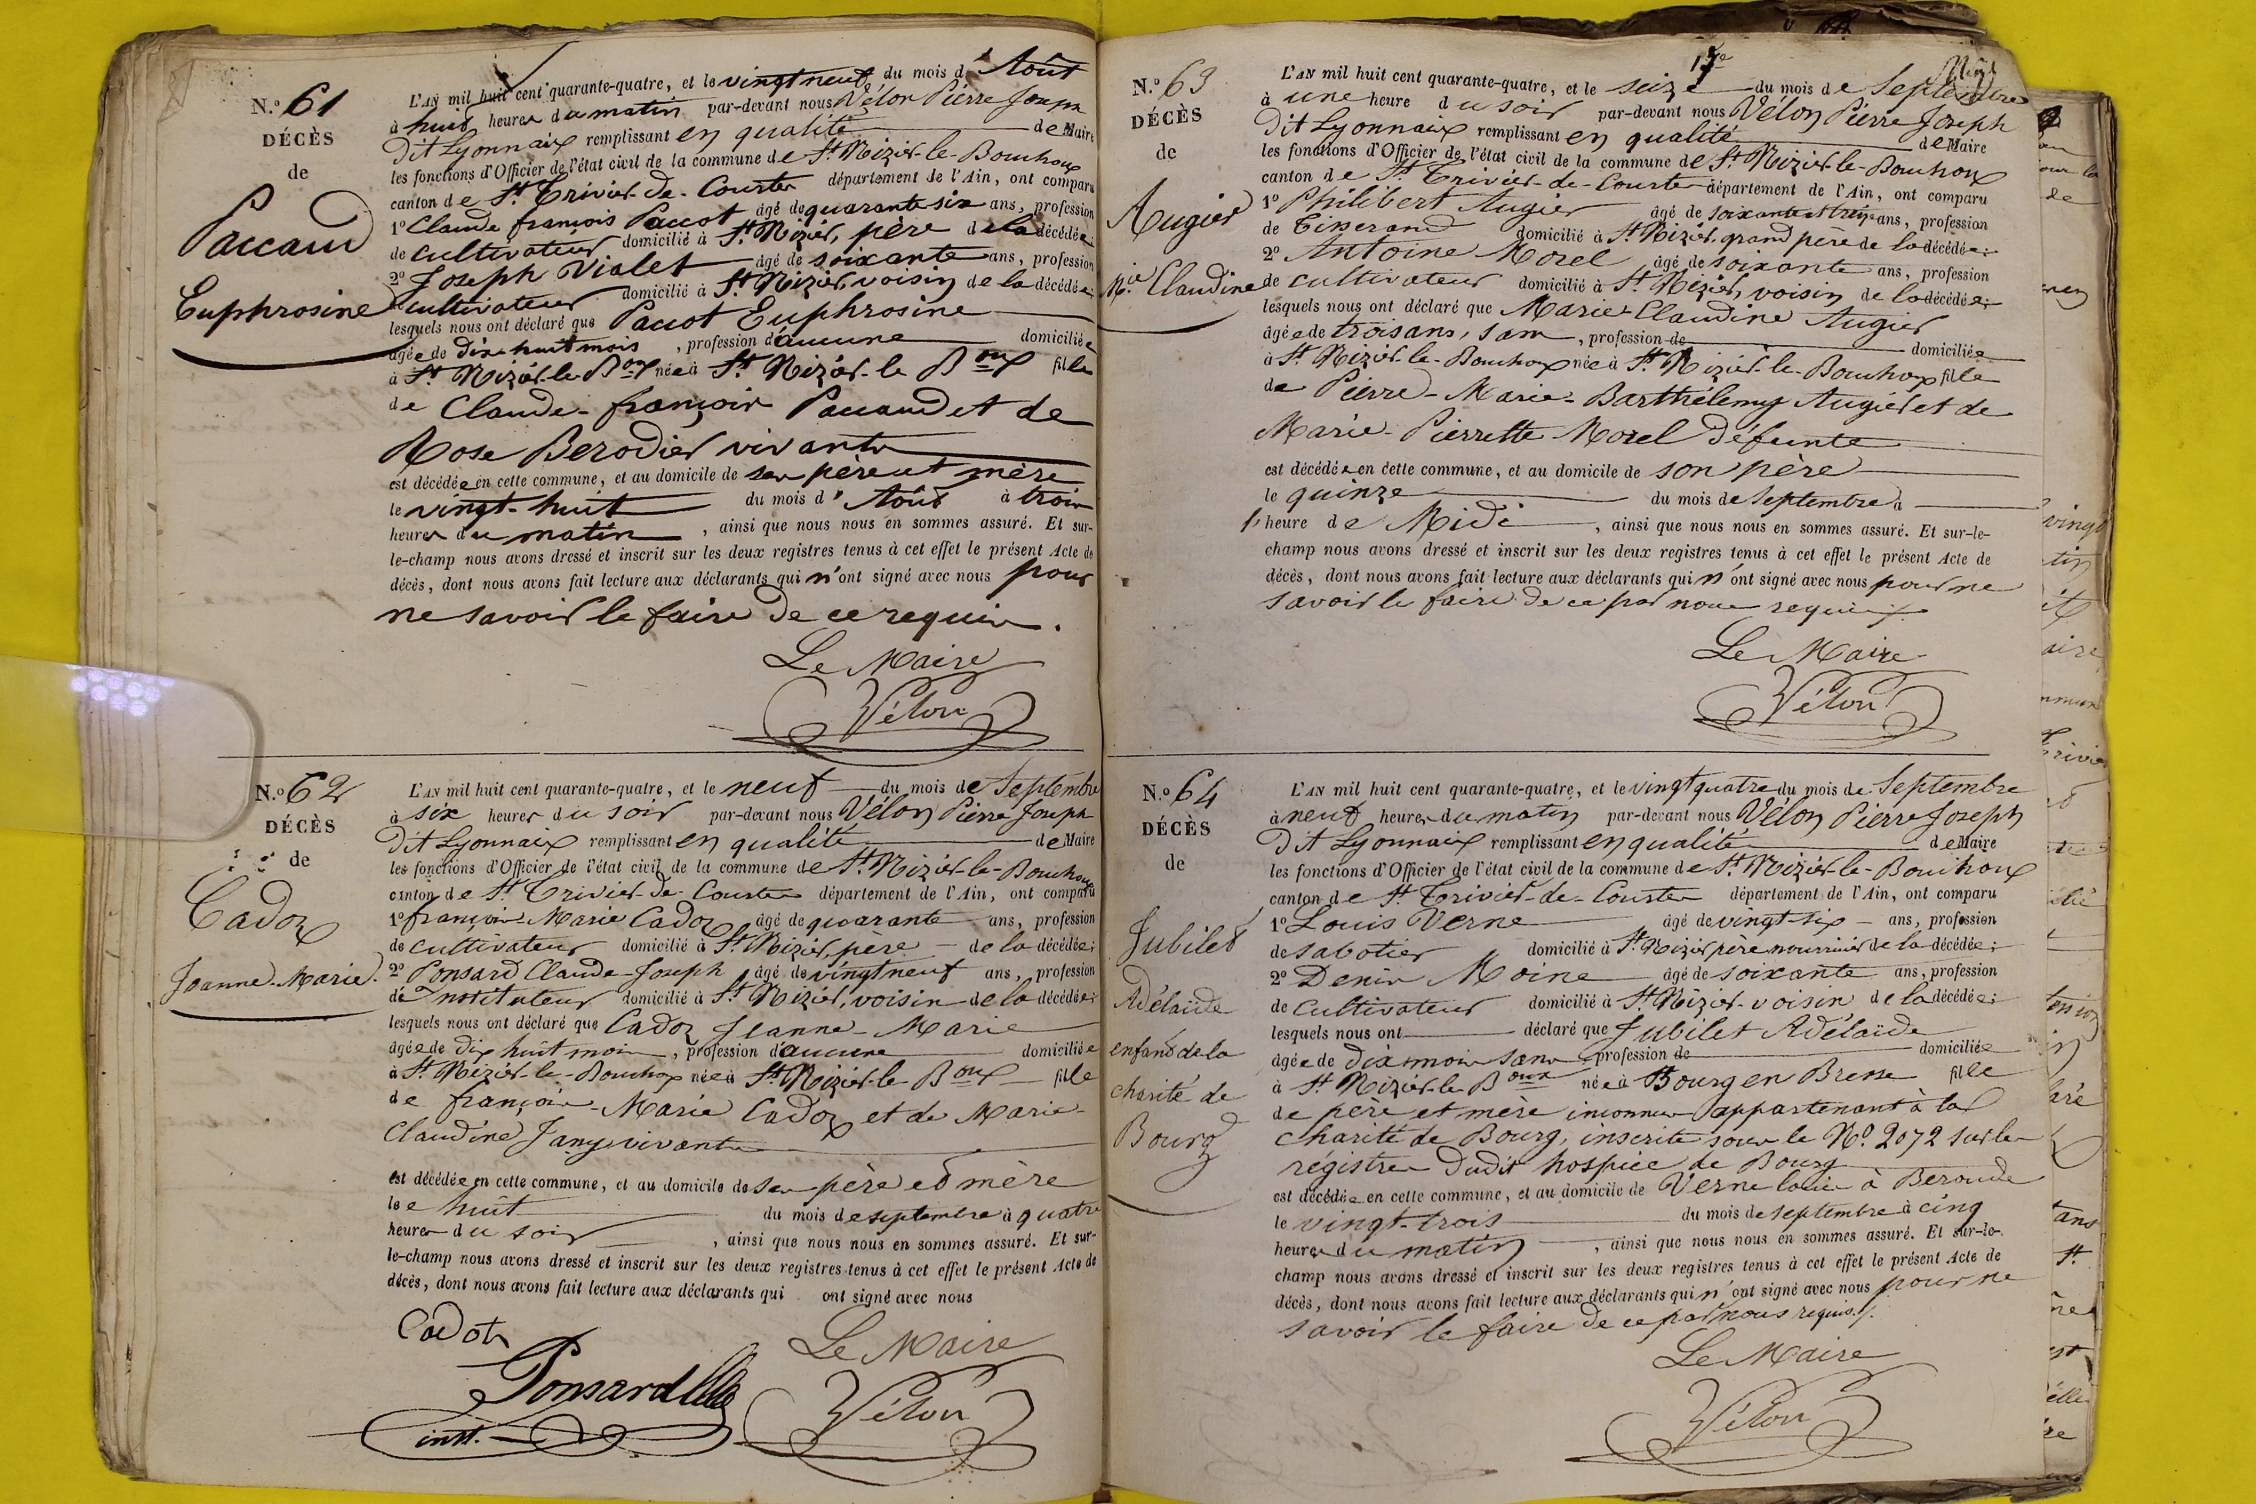 N.º 61
DÉCÈS
de
Paccaud
Euphrosine
L'AN mil huit cent quarante-quatre, et le vingt neuf du mois d'Août
à huit heures du matin par-devant nous Vélon Pierre Joseph
Dit Lyonnaix remplissant en qualité de Maire
les fonctions d'Officier de l'état civil de la commune de St Nizier-le-Bouchoux
canton de St Trivier-de-Courtes département de l'Ain, ont comparu
1º Claude françois Paccot âgé de quarante six ans, profession
de cultivateur domicilié à St Nizier, père de la décédée;
2º Joseph Vialet âgé de soixante ans, profession
de cultivateur domicilié à St Nizier, voisin de la décédée;
lesquels nous ont déclaré que Paccot Euphrosine
âgée de dix huit mois, profession d'aucune domiciliée
à St Nizier-le Boux née à St Nizier-le Boux fille
de Claude-françois Paccaud et de
Rose Berodier vivants
est décédée en cette commune, et au domicile de ses père et mère
le vingt-huit du mois d'Août à trois
heures du matin, ainsi que nous nous en sommes assuré. Et sur-
le-champ nous avons dressé et inscrit sur les deux registres tenus à cet effet le présent Acte de
décès, dont nous avons fait lecture aux déclarants qui n'ont signé avec nous pour
ne savoir le faire de ce requis.
Le Maire
Vélon
N.º 62
DÉCÈS
de
Cadoz
Jeanne-Marie.
L'AN mil huit cent quarante-quatre, et le neuf du mois de Septembre
à six heures du soir par-devant nous Vélon Pierre Joseph
Dit Lyonnaix remplissant en qualité de Maire
les fonctions d'Officier de l'état civil de la commune de St Nizier-le-Bouchoux
canton de St Trivier-de-Courtes département de l'Ain, ont comparu
1º françois Marie Cadoz âgé de quarante ans, profession
de cultivateur domicilié à St Nizier, père de la décédée;
2º Ponsard Claude-Joseph âgé de vingt neuf ans, profession
de Instituteur domicilié à St Nizier, voisin de la décédée;
lesquels nous ont déclaré que Cadoz Jeanne-Marie
âgée de dix huit mois, profession d'aucune domiciliée
à St Nizier-le-Bouchox née à St Nizier-le Boux fille
de françois-Marie Cadoz et de Marie-
Claudine Jany vivants
est décédée en cette commune, et au domicile de ses père et mère
le huit du mois de septembre à quatre
heures du soir, ainsi que nous nous en sommes assuré. Et sur-
le-champ nous avons dressé et inscrit sur les deux registres tenus à cet effet le présent Acte de
décès, dont nous avons fait lecture aux déclarants qui ont signé avec nous
Cadot
Le Maire
Ponsard
inst.
Vélon
N.º 63
DÉCÈS
de
Augier
Mie Claudine
L'AN mil huit cent quarante-quatre, et le seize du mois de Septembre
à une heure du soir par-devant nous Vélon Pierre Joseph
Dit Lyonnaix remplissant en qualité de Maire
les fonctions d'Officier de l'état civil de la commune de St Nizier-le-Bouchoux
canton de St Trivier-de-Courtes département de l'Ain, ont comparu
1º Philibert Augier âgé de soixante et treize ans, profession
de Tisserand domicilié à St Nizier, grand père de la décédée;
2º Antoine Morel âgé de soixante ans, profession
de cultivateur domicilié à St Nizier, voisin de la décédée;
lesquels nous ont déclaré que Marie-Claudine Augier
âgée de trois ans, sans, profession de domiciliée
à St Nizier-le-Bouchox née à St Nizier-le-Bouchox fille
de Pierre-Marie-Barthélemy Augier et de
Marie-Pierrette Morel défunte
est décédée en cette commune, et au domicile de son père
le quinze du mois de septembre à
heure de Midi, ainsi que nous nous en sommes assuré. Et sur-le-
champ nous avons dressé et inscrit sur les deux registres tenus à cet effet le présent Acte de
décès, dont nous avons fait lecture aux déclarants qui n'ont signé avec nous pour ne
savoir le faire de ce par nous requis
Le Maire
Vélon
N.º 64
DÉCÈS
de
Jubilet
Adélaïde
enfant de la
charité de
Bourg
L'AN mil huit cent quarante-quatre, et le vingt quatre du mois de Septembre
à neuf heures du matin par-devant nous Vélon Pierre Joseph
Dit Lyonnaix remplissant en qualité de Maire
les fonctions d'Officier de l'état civil de la commune de St Nizier-le-Bouchoux
canton de St Trivier-de-Courtes département de l'Ain, ont comparu
1º Louis Verne âgé de vingt six ans, profession
de sabotier domicilié à St Nizier père nourricier de la décédée;
2º Denis Moine âgé de soixante ans, profession
de cultivateur domicilié à St Nizier-voisin de la décédée;
lesquels nous ont déclaré que Jubilet Adélaïde
âgée de dix mois sans profession de domiciliée
à St Nizier-le Boux née à Bourg en Bresse fille
de père et mère inconnus appartenant à la
charité de Bourg, inscrite sous le Nº 2072 sur les
régistres dudit hospice de Bourg
est décédée en cette commune, et au domicile de Verne Louis à Beroude
le vingt-trois du mois de septembre à cinq
heures du matin, ainsi que nous nous en sommes assuré. Et sur-le-
champ nous avons dressé et inscrit sur les deux registres tenus à cet effet le présent Acte de
décès, dont nous avons fait lecture aux déclarants qui n'ont signé avec nous pour ne
savoir le faire de ce par nous requis.
Le Maire
Vélon